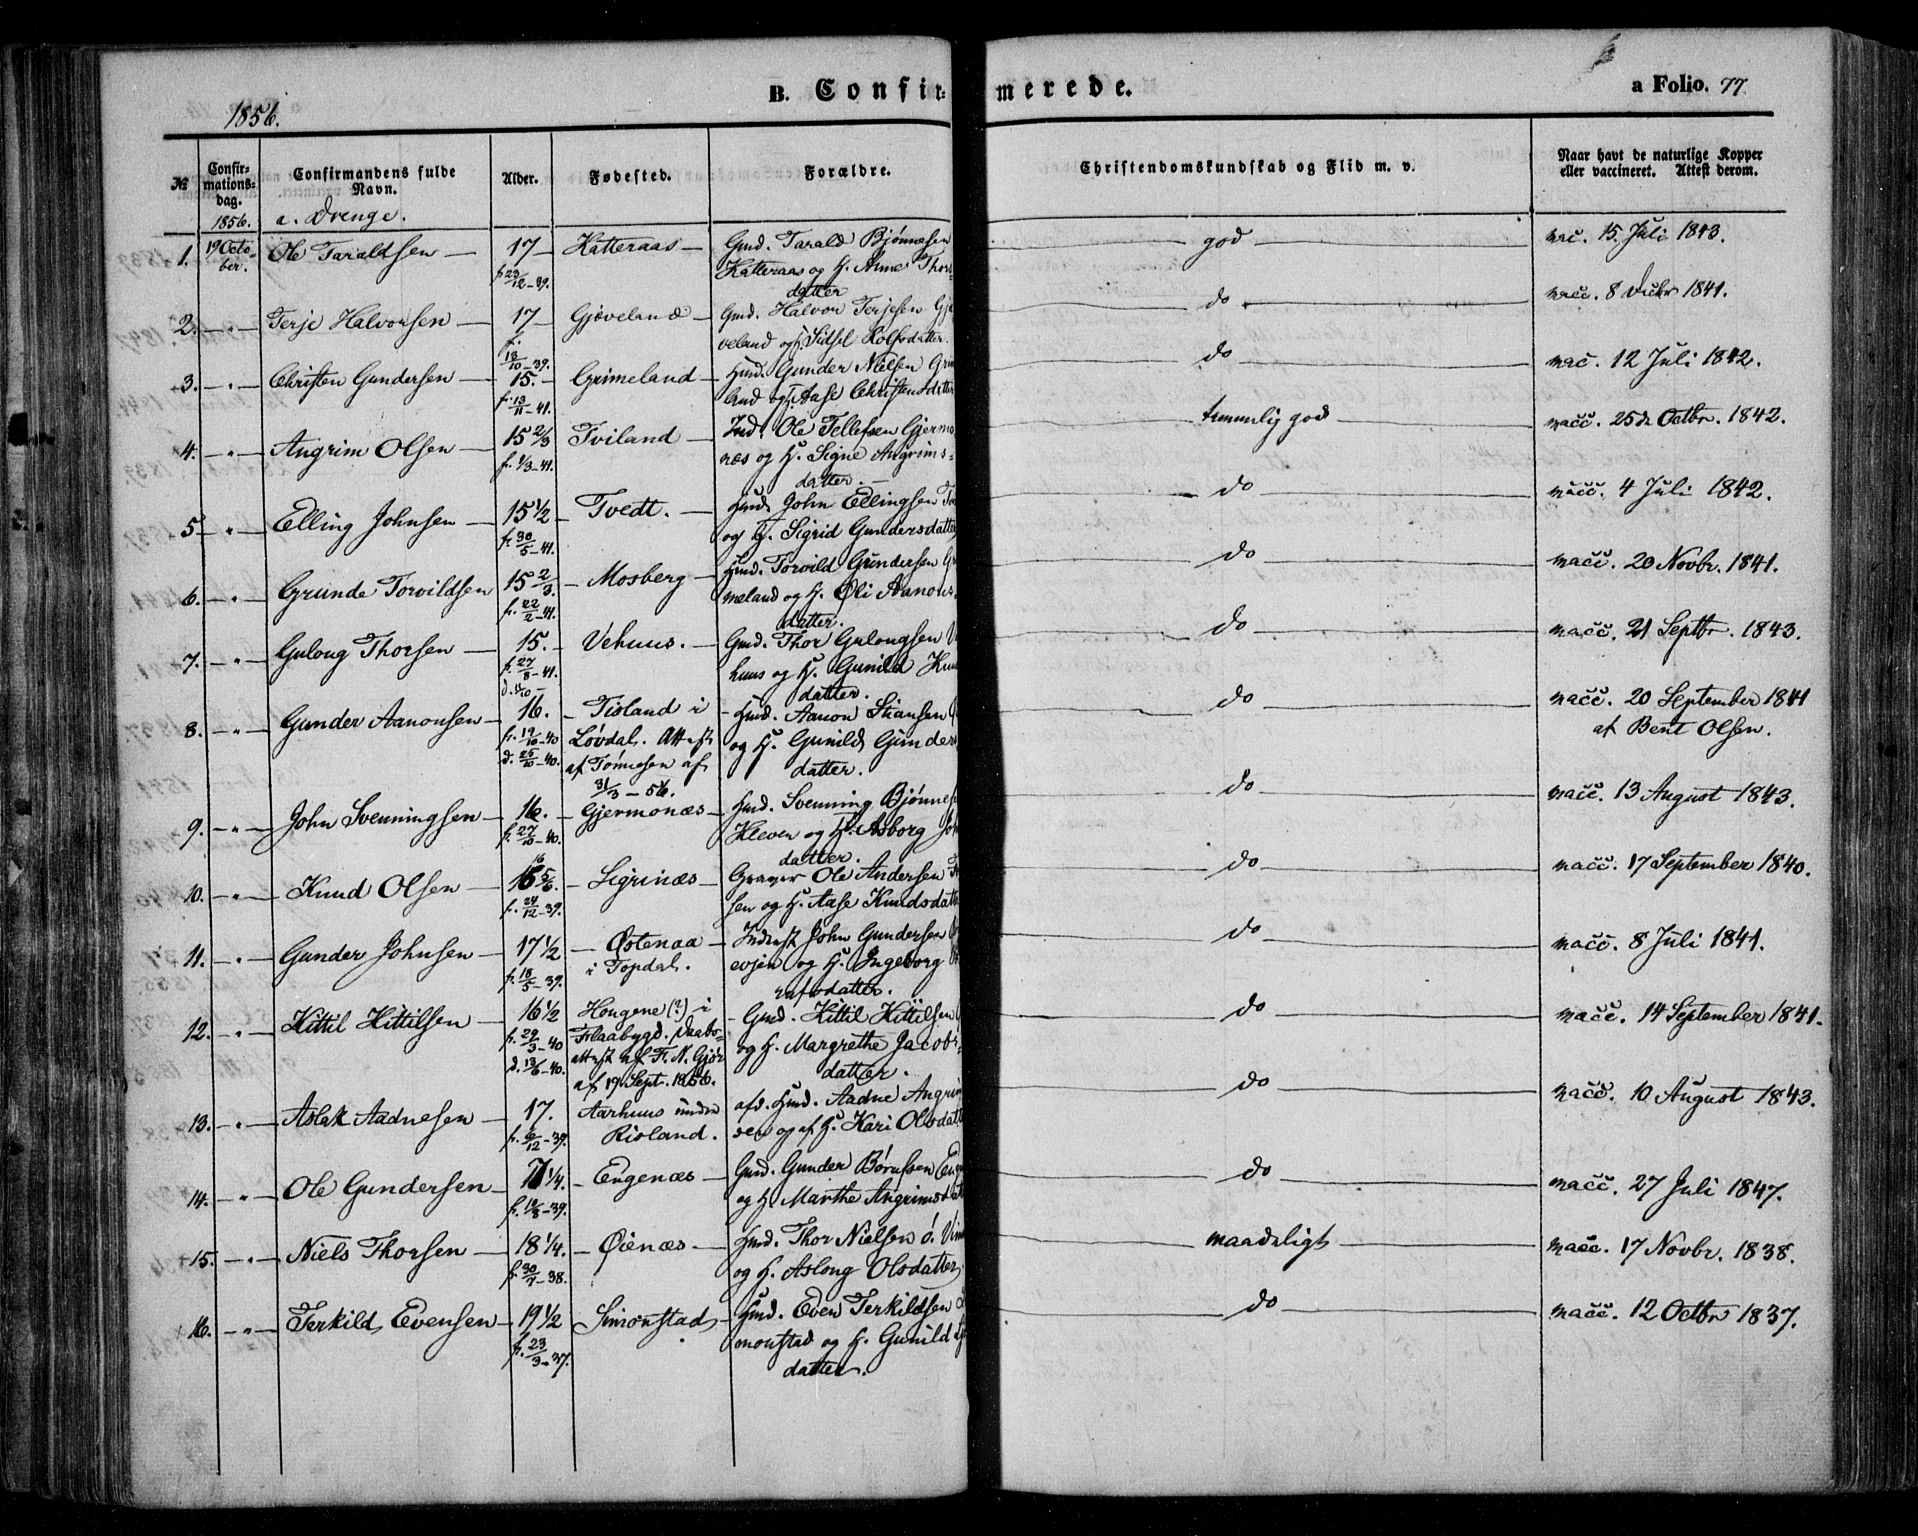 B. Confir-merede.
a Folio. 77
1856.
№
Confir-
mations-
dag.
1856.
Confirmandens fulde
Navn.
a. Drenge.
Alder.
Fødested.
Forældre.
Christendomskundskab og Flid m. v.
Naar havt de naturlige Kopper
eller vaccineret. Attest derom.
1. 19 Octo- Ole Taraldsen — 17 — Katteraas — Gmd. Tarald Bjønnesen god vac. 15. Juli 1843.
ber. f. 23/12-39. Katteraas og H. Anne Thors
datter
2. — " — Terje Halvorsen — 17 — Gjøveland — Gmd. Halvor Terjesen Gjø do vacc. 8 Decbr 1841.
f. 18/10-39. veland og H. Sidsel Rolfsdatter.
3. — " — Christen Gundersen — 15. — Grimeland — Hmd. Gunder Nielsen Grim do vac. 12 Juli 1842.
f. 13/11-41. land og H. Aase Christensdatter
4. — " — Angrim Olsen — 15 2/3 Tviland — Ind. Ole Tellefsen Gjermo temmelig god vacc. 25de Octbr. 1842.
f. 1/3-41. næs og H. Signe Angrims-
datter. —
5. — " — Elling Johnsen — 15 1/2 — Tvedt. — Hmd. John Ellingsen Tv do vacc. 4 Juli 1842.
f. 30/5-41. og H. Sigrid Gundersdatter
6. — " — Grunde Torvildsen 15 2/3 — Mosberg — Hmd. Torvild Gundersen Gri do vacc. 20 Novbr. 1841.
f. 22/2-41. meland og H. Øli Aanons-
datter.
7. — " — Gulong Thorsen — 15. — Vehuus. — Gmd. Thor Gulongsen V do vacc. 21 Septbr. 1843.
f. 27/8-41. huus og H. Gunild Knu
datter.
8. — " — Gunder Aanonsen — 16. — Tisland i — Hmd. Aanon Stiansen do vacc. 20 September 1841
f. 19/10-40 Løvdal. Attest og H. Gunild Gunders af Bent Olsen.
d. 25/10-40. af Tønnesen af datter.
31/3 — 56.
9. — " — John Svenningsen — 16. — Gjermonæs — Hmd. Svenning Bjønnes do vacc. 13 August 1843.
f. 27/10-40. Kleven og H. Asborg Joh
datter.
10. — " — Knud Olsen — 16 5/6. — Sigrinæs — Graver Ole Andersen do vacc. 17 September 1840.
f. 24/12-39. sen og H. Aase Knudsdatte
11. — " — Gunder Johnsen — 17 1/2 — Østenaa — Inderst John Gundersen do vacc. 8 Juli 1841.
f. 18/5-39. i Topdal. evjen og H. Ingeborg
datter.
12. — " — Kittil Kittilsen — 16 1/2 Hougene (?) i — Gmd. Kittil Kittilsen do vacc. 14 September 1841.
f. 29/3-40 Flaabygd. Daabs- og H. Margrethe Jacobs-
d. 13/6-40. attest af F. N. Gjør datter.
af 19 Sept. 1856.
13. — " — Aslak Aadnesen — 17. Aarhuus under afd. Hmd. Aadne Angrim do vacc. 10 August 1843.
f. 6/12-39. Risland. sen og af H. Kari Olsdatt
14. — " — Ole Gundersen — 17 1/4. — Engenæs — Gmd. Gunder Børufsen Eng do vacc. 27 Juli 1847.
f. 12/8-39. og H. Marthe Angrimsdat
15. — " — Niels Thorsen — 18 1/4. — Øienæs — Hmd. Thor Nielsen ø. Vin maadeligt vacc. 17 Novbr. 1838.
f. 30/7-38. og H. Aslong Olsdatter
16. — " — Terkild Evensen — 19 1/2 Simonstad — Hmd. Even Terkildsen do vacc. 12 Octbr 1837.
f. 23/3-37. monstad og H. Gunild
datter.